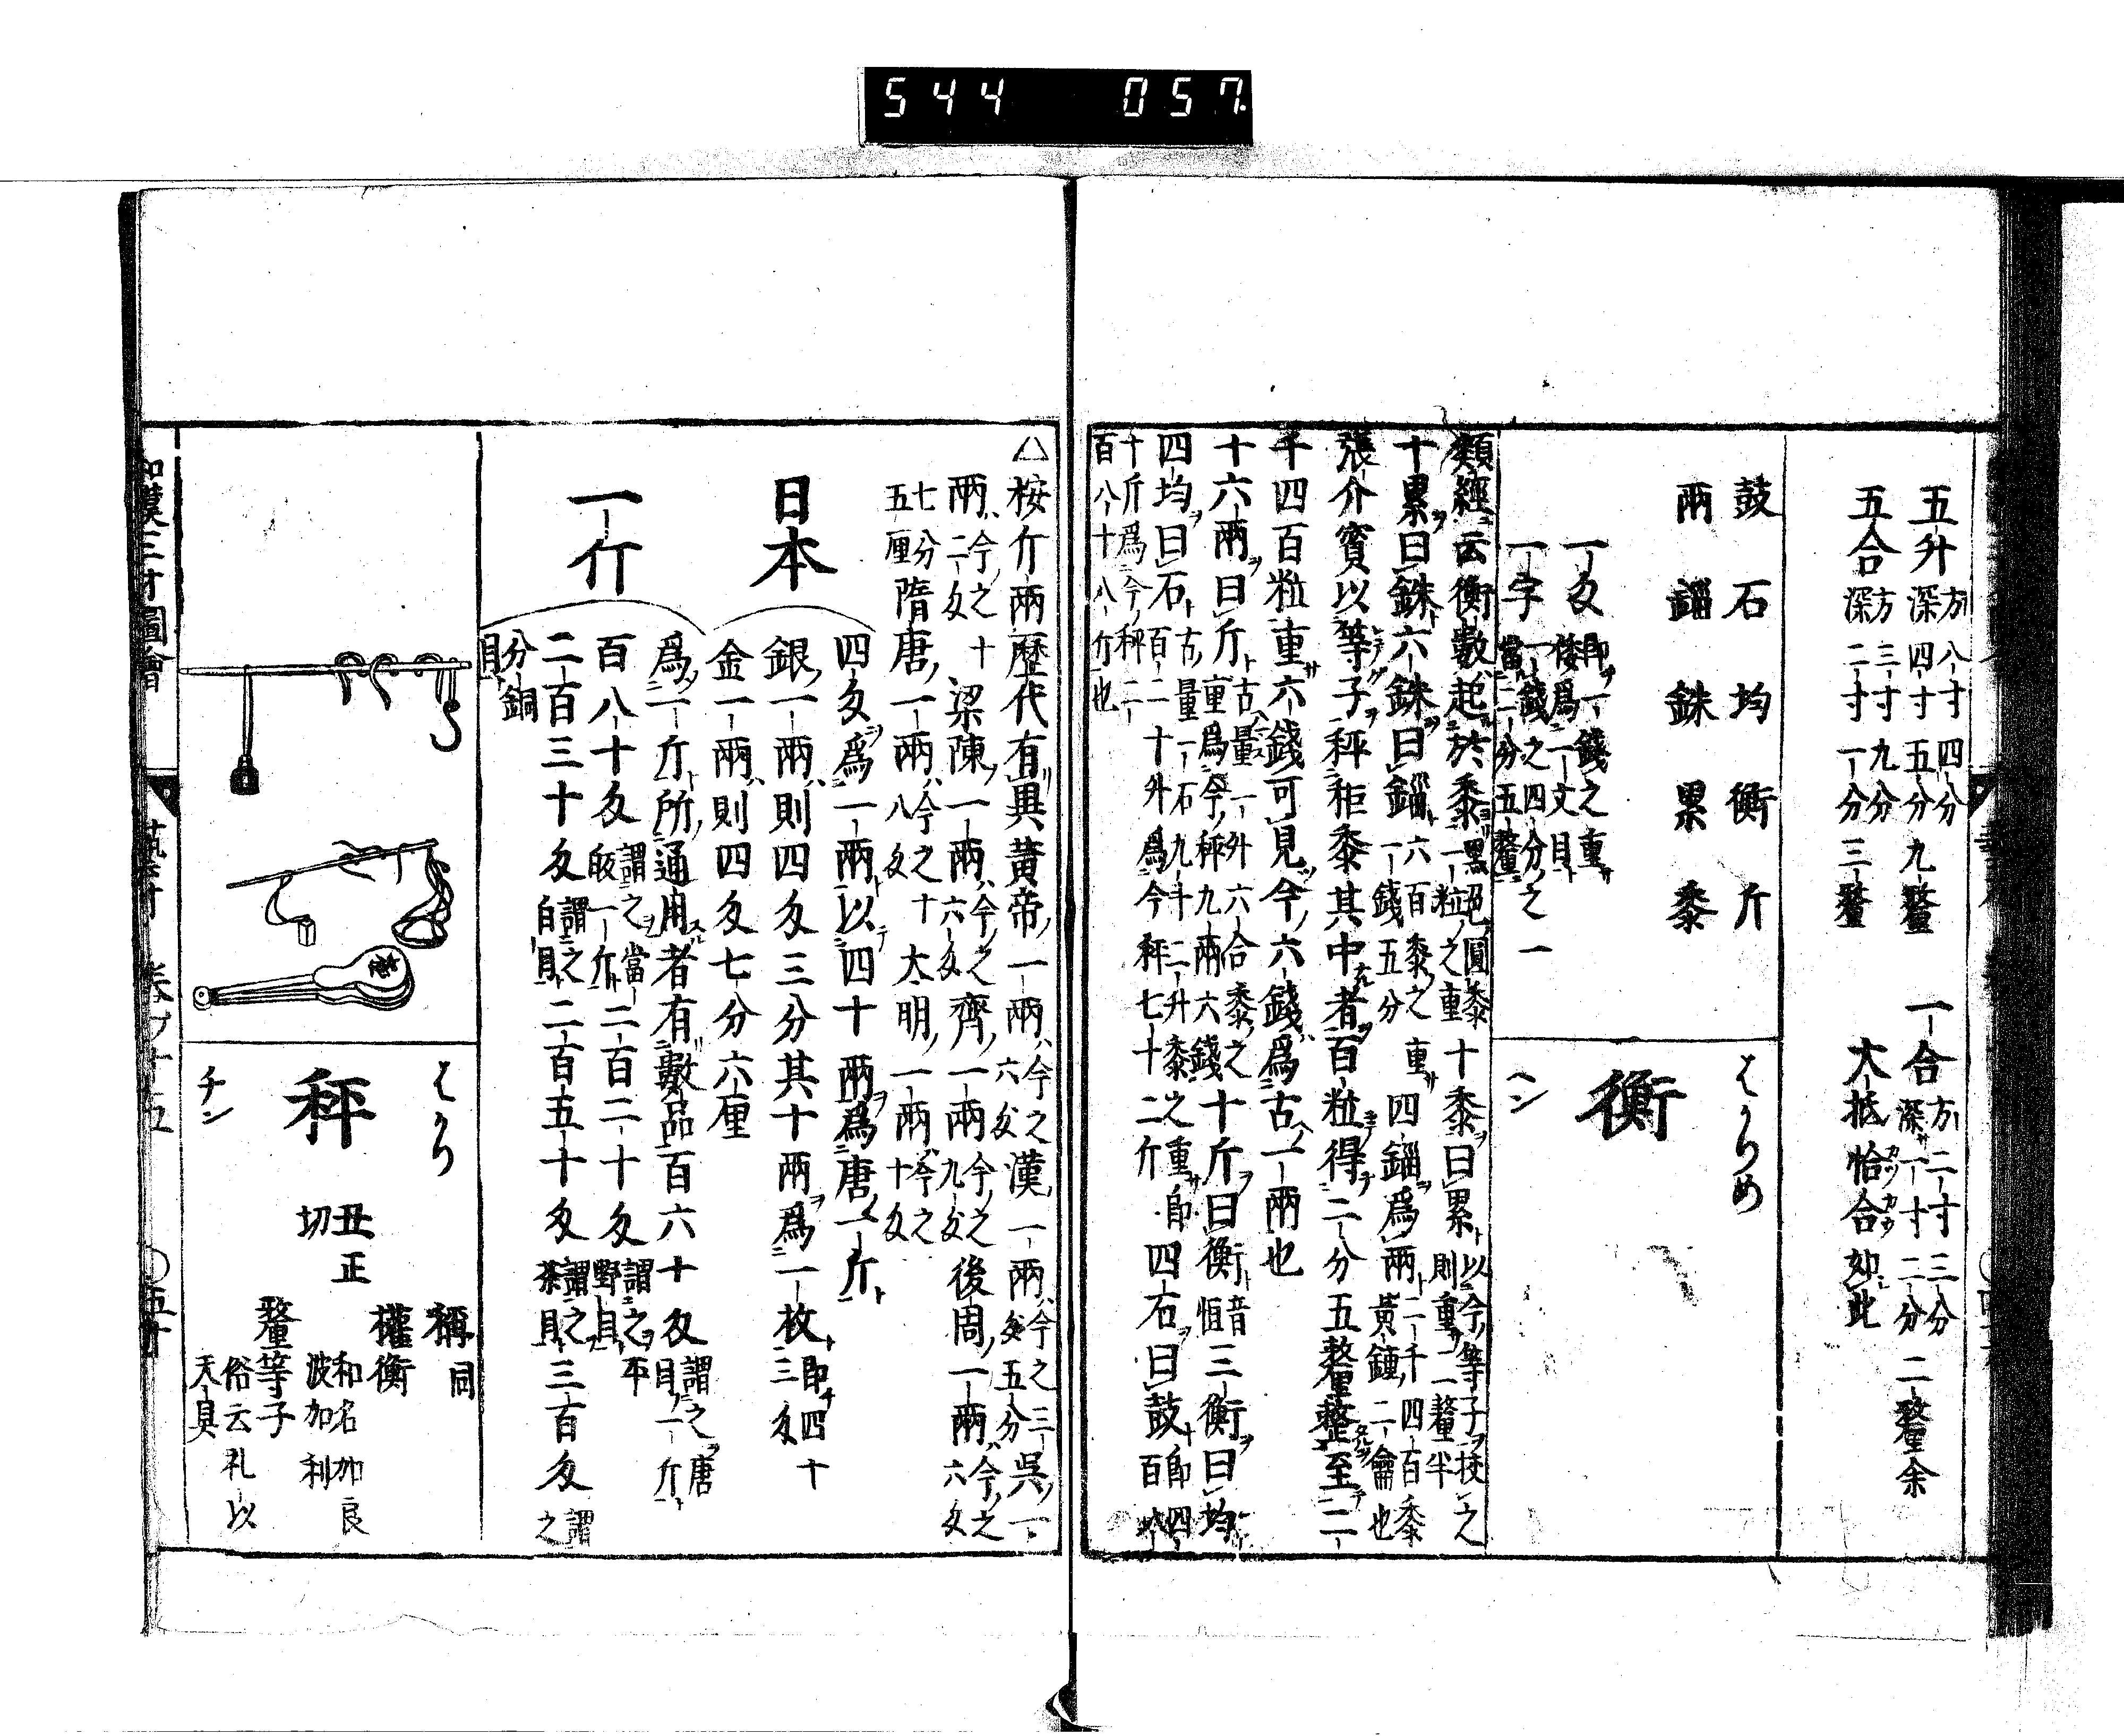 544 057
五升 方八寸四分 深四寸五分九釐 一合 方二寸三分 深一寸二分二釐余
五合 方三寸九分 深二寸一分三釐 大抵恰合如此
鼓 石 均 衡 斤
兩 錙 銖 累 黍
一匁 即一錢之重 倭爲一文目
一字 一錢之四分之一 當二分五釐
はかりめ
衡
ヘン
類經云衡數起於黍 黑色圓黍 一粒之重 十黍曰累 以今等子挍之 則重二釐半
十累曰銖六銖曰錙 六百黍之重 一錢五分 四錙爲兩 二千四百黍 黃鐘二龠也
張介賓以等子秤秬黍其中者百粒得二分五釐整至二
千四百粒重六錢可見今六錢爲古一兩也
十六兩曰斤 古量一外六合黍之 重爲今秤九兩六錢 十斤曰衡 音恒 三衡曰均
四均曰石 古量一石九十二升黍之重即 百二十外爲今秤七十二斤 四石曰鼓 即四百
十斤爲今秤二
百八十八斤也
△按斤兩歷代有異黃帝一兩 今之六匁 漢一兩 今之三匁五分 吳一
兩 今之二匁十 梁陳一兩 今之六匁 齊一兩 今之九匁 後周一兩 今之六匁
七分五厘 隋唐一兩 今之十八匁 大明一兩 今之十匁
四匁爲一兩以四十兩爲唐一斤
日本
銀一兩則四匁三分其十兩爲一枚 即四十三匁
金一兩則四匁七分六厘
一斤
爲一斤所通用者有數品百六十匁 謂之唐目一斤
百八十匁 謂之當 皈一斤 二百二十匁 謂之平野目
二百三十匁 謂之自目 二百五十匁 謂之茶目 三百匁 謂之
分銅目
はかり
秤
チン
丑正切
稱 同
權衡 和名加良波加利
釐等子 俗云礼以天具
和漢三才圖會